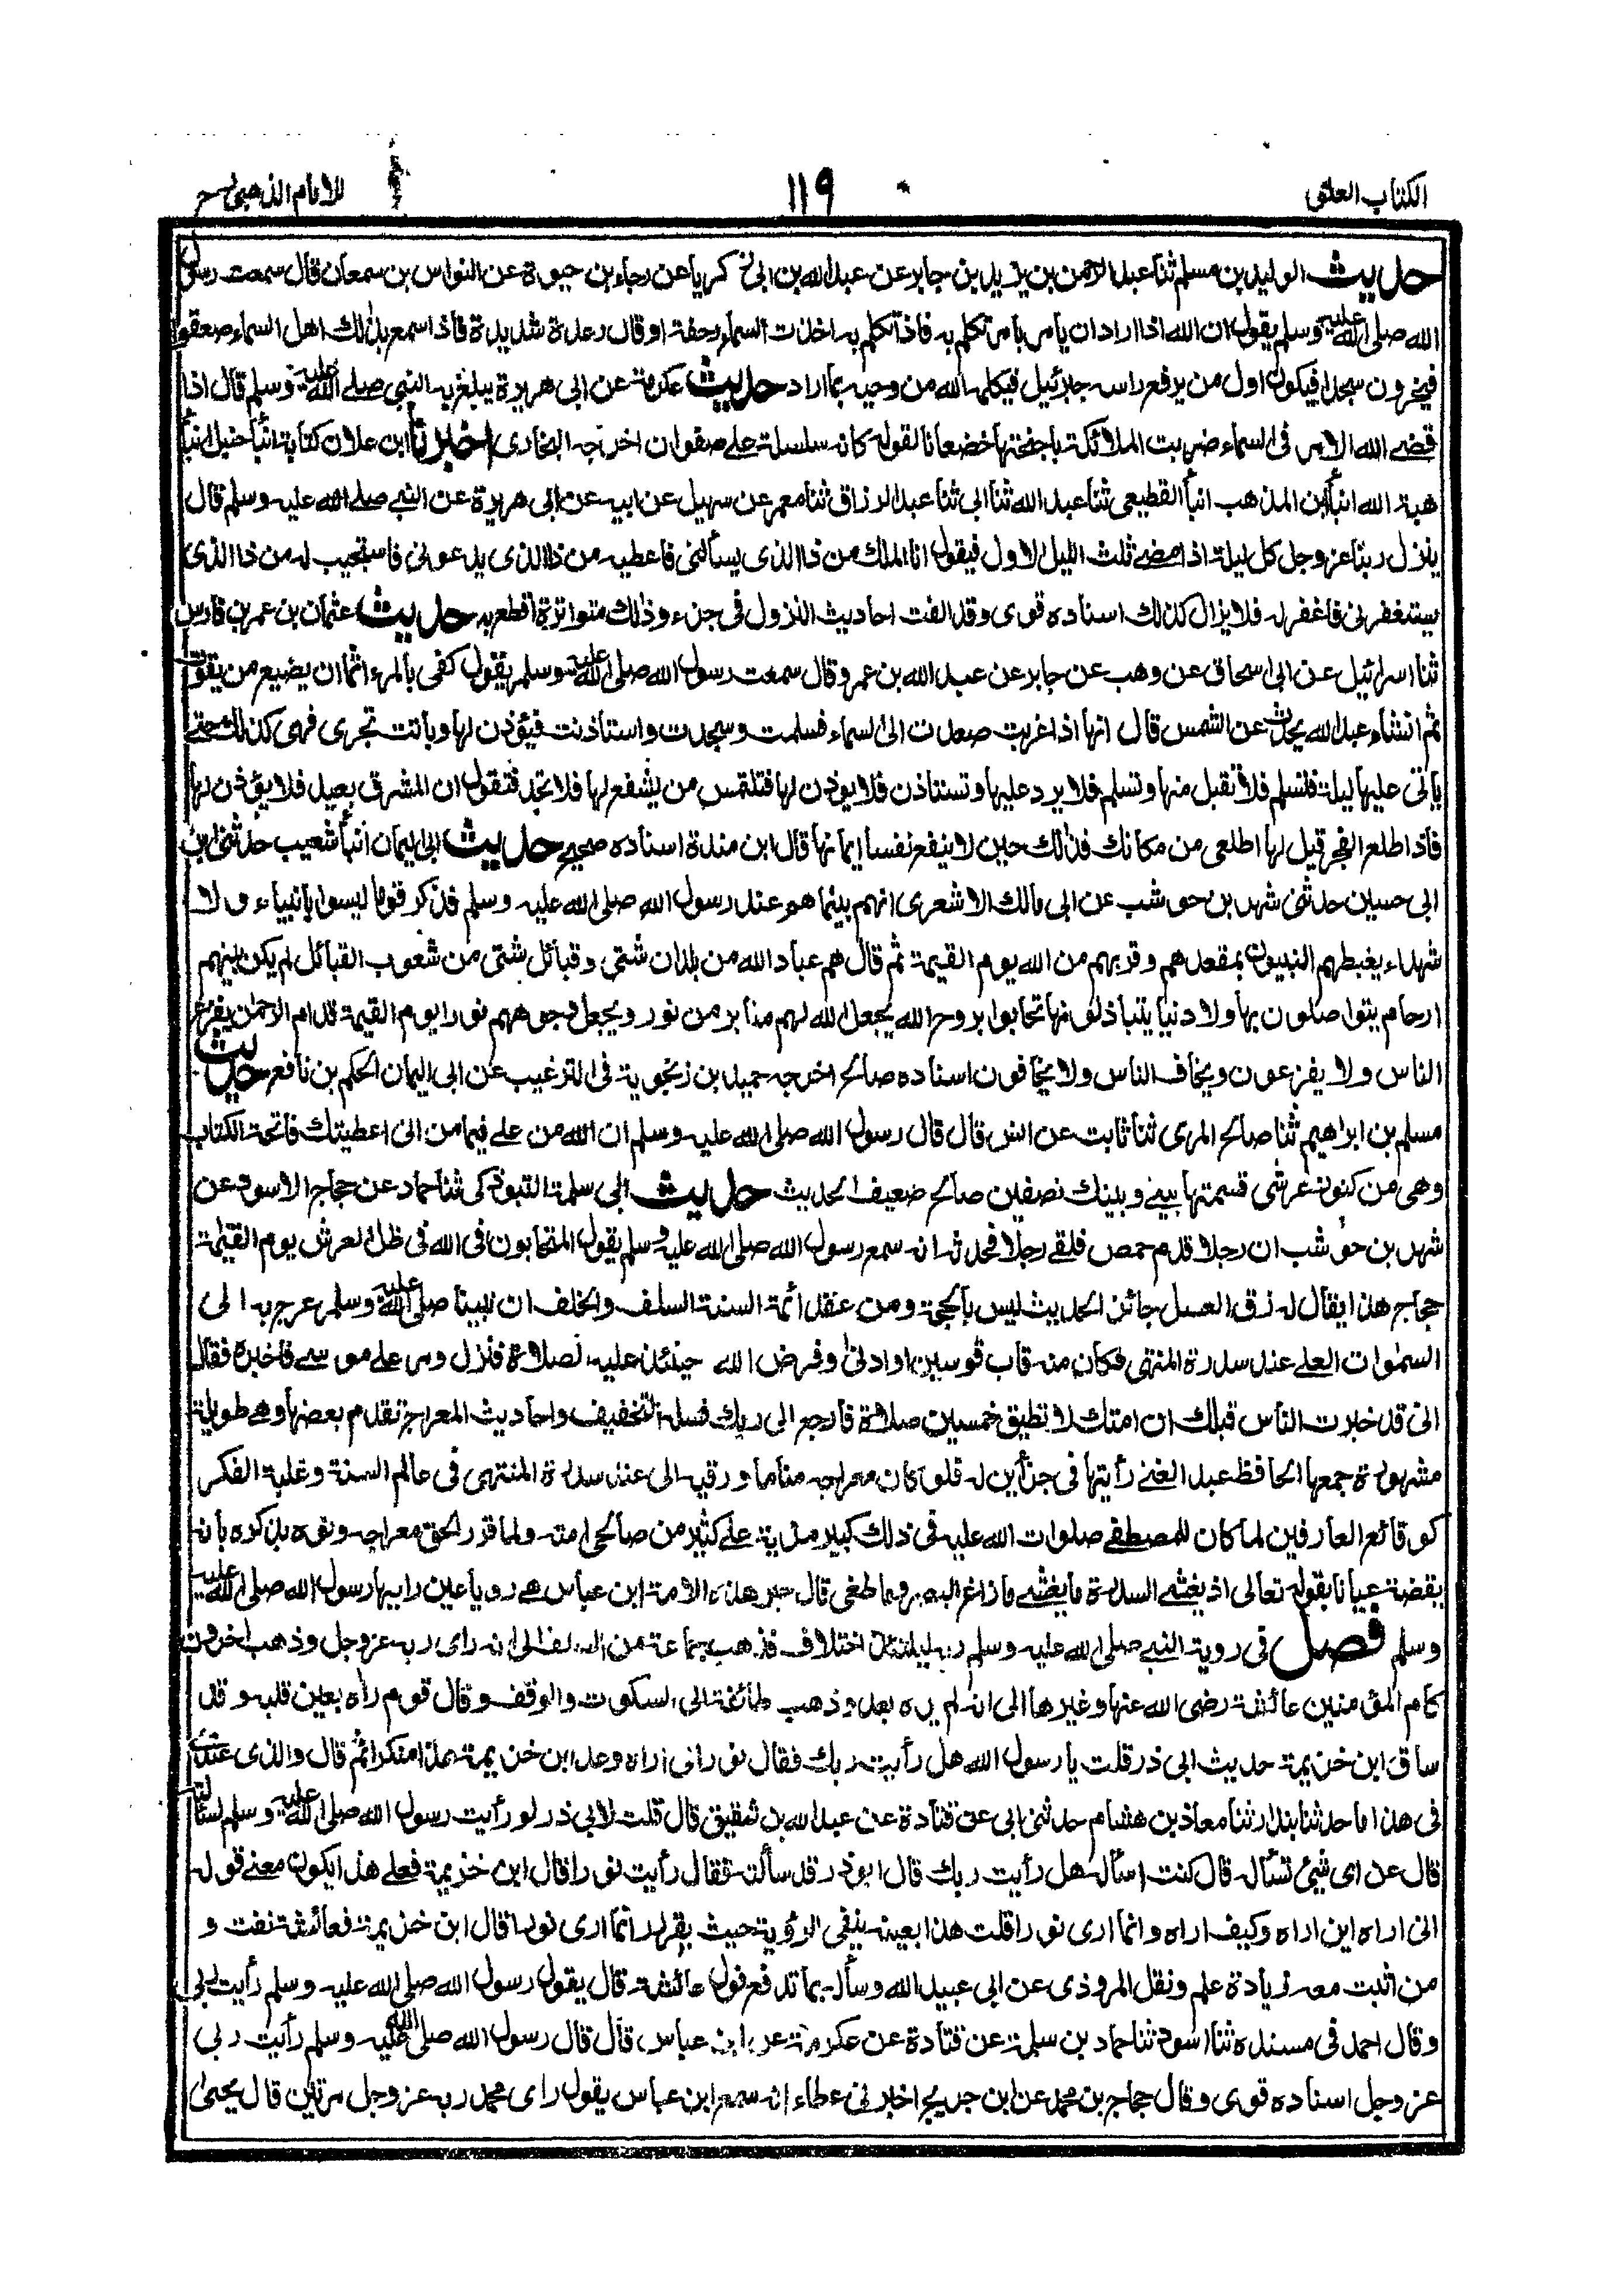 الكتاب العلو
١١٩
للامام الذهبى
حديث الوليد بن مسلم ثنا عبد الرحمن بن يزيد بن جابر عن عبد الله بن ابى زكريا عن رجاء بن حيوة عن النواس بن سمعان قال سمعت رسول
الله صلى الله عليه وسلم يقول ان الله اذا اراد ان يامر بامر تكلم به فاذا تكلم به اخذت السماء رجفة او قال رعدة شديدة فاذا سمع بذلك اهل السماء صعقوا
فيخرون سجدا فيكون اول من يرفع راسه جبرئيل فيكلمه الله من وحيه بما اراد حديث عكرمة عن ابى هريرة يبلغ به النبي صلى الله عليه وسلم قال اذا
قضى الله الامر فى السماء ضربت الملائكة باجنحتها خضعانا لقوله كانه سلسلة على صفوان اخرجه البخارى اخبرنا ابن علان كتابة انبأ حنبل انبأ
هبة الله انبأ ابن المذهب انبأ القطيعى ثنا عبد الله ثنا ابى ثنا عبد الرزاق ثنا معمر عن سهيل عن ابيه عن ابى هريرة عن النبى صلى الله عليه وسلم قال
ينزل ربنا عز وجل كل ليلة اذا مضى ثلث الليل الاول فيقول انا الملك من ذا الذى يسألنى فاعطيه من ذا الذى يدعونى فاستجيب له من ذا الذى
يستغفرنى فاغفر له فلا يزال كذلك اسناده قوى وقد الفت احاديث النزول فى جزء وذلك متواترة اقطع به حديث عثمان بن عمر بن فارس
ثنا اسرائيل عن ابى اسحاق عن وهب عن جابر عن عبد الله بن عمرو قال سمعت رسول الله صلى الله عليه وسلم يقول كفى بالمرء اثما ان يضيع من يقوت
ثم انشاء عبد الله يحدث عن الشمس قال انها اذا غربت صعدت الى السماء فسلمت وسجدت واستاذنت فيؤذن لها وباتت تجرى فهى كذلك حتى
ياتى عليها ليلة فتسلم فلا تقبل منها وتسلم فلا يرد عليها وتستاذن فلا يوذن لها فتلتمس من يشفع لها فلا تجد فتقول ان المشرق بعيد فلا يؤذن لها
فاذا طلع الفجر قيل لها اطلعى من مكانك فذلك حين لا ينفع نفسا ايمانها قال ابن مندة اسناده صحيح حديث ابى اليمان انبأ شعيب حدثنى ابن
ابى حسين حدثنى شهر بن حوشب عن ابى مالك الاشعرى انهم بينما هم عند رسول الله صلى الله عليه وسلم فذكر قوما ليسوا بانبياء ولا
شهداء يغبطهم النبيون بمقعدهم وقربهم من الله يوم القيمة ثم قال هم عباد الله من بلدان شتى وقبائل شتى من شعوب القبائل لم يكن بينهم
ارحام يتواصلون بها ولا دنيا يتباذلون بها تحابوا بروح الله يجعل الله لهم منابر من نور ويجعل وجوههم نورا يوم القيمة قدام الرحمن يفزع
الناس ولا يفزعون ويخاف الناس ولا يخافون اسناده صالح اخرجه حميد بن زنجوية فى الترغيب عن ابى اليمان الحكم بن نافع حديث
مسلم بن ابراهيم ثنا صالح المرى ثنا ثابت عن انس قال قال رسول الله صلى الله عليه وسلم ان الله من على فيما من انى اعطيتك فاتحة الكتاب
وهى من كنوز عرشى قسمتها بينى وبينك نصفين صالح ضعيف الحديث حديث ابى سلمة التبوذكى ثنا حماد عن حجاج الاسود عن
شهر بن حوشب ان رجلا قدم حمص فلقى رجلا فحدثه انه سمع رسول الله صلى الله عليه وسلم يقول المتحابون فى الله فى ظل العرش يوم القيمة
حجاج هذا يقال له زق العسل جائز الحديث ليس بالحجة ومن عقد ائمة السنة السلف والخلف ان نبينا صلى الله عليه وسلم عرج به الى
السموات العلى عند سدرة المنتهى فكان منه قاب قوسين او ادنى وفرض الله حينئذ عليه الصلاة فنزل ومر على موسى فاخبره فقال
انى قد خبرت الناس قبلك ان امتك لا تطيق خمسين صلاة فارجع الى ربك فسله التخفيف واحاديث المعراج تقدم بعضها وهى طويلة
مشهورة جمعها الحافظ عبد الغنى رأيتها فى جزأين له فلو كان معراجه مناما ورقيه الى عند سدرة المنتهى فى عالم السنة وغلبة الفكر
كوقائع العارفين لما كان للمصطفى صلوات الله عليه فى ذلك كبير مزية على كثير من صالحى امته ولما قرر الحق معراجه ونوه بذكره بانه
يقضة عيانا بقوله تعالى اذ يغشى السدرة ما يغشى ما زاغ البصر وما طغى قال حبر هذه الامة ابن عباس هى رويا عين رايها رسول الله صلى الله عليه
وسلم فصل فى روية النبى صلى الله عليه وسلم ربه ليلتئذ اختلاف فذهب جماعة من السلف الى انه راى ربه عز وجل وذهب اخرون
كام المؤمنين عائشة رضى الله عنها وغيرها الى انه لم يره بعد وذهب طائفة الى السكوت والوقف وقال قوم راه بعين قلبه وقد
ساق ابن خزيمة حديث ابى ذر قلت يا رسول الله هل رأيت ربك فقال نور انى اراه وعد ابن خزيمة هذا منكرا ثم قال والذى عندى
فى هذا ما حدثنا بندار ثنا معاذ بن هشام حدثنى ابى عن قتادة عن عبد الله بن شقيق قال قلت لابى ذر لو رأيت رسول الله صلى الله عليه وسلم لسألته
قال عن اى شئ تسأله قال كنت اسأله هل رأيت ربك قال ابو ذر قد سألته فقال رأيت نورا قال ابن خزيمة فعلى هذا يكون معنى قوله
انى اراه اين اراه وكيف اراه وانما ارى نورا قلت هذا بعينه ينفى الرؤية حيث يقول انما ارى نورا قال ابن خزيمة فعائشة نفت و
من اثبت معه زيادة علم ونقل المروذى عن ابى عبيد الله وسأله بما تدفع قول عائشة قال يقول رسول الله صلى الله عليه وسلم رأيت ربى
وقال احمد فى مسنده ثنا اسود ثنا حماد بن سلمة عن قتادة عن عكرمة عن ابن عباس قال قال رسول الله صلى الله عليه وسلم رأيت ربى
عز وجل اسناده قوى وقال حجاج بن محمد عن ابن جريج اخبرنى عطاء انه سمع ابن عباس يقول راى محمد ربه عز وجل مرتين قال يحيى